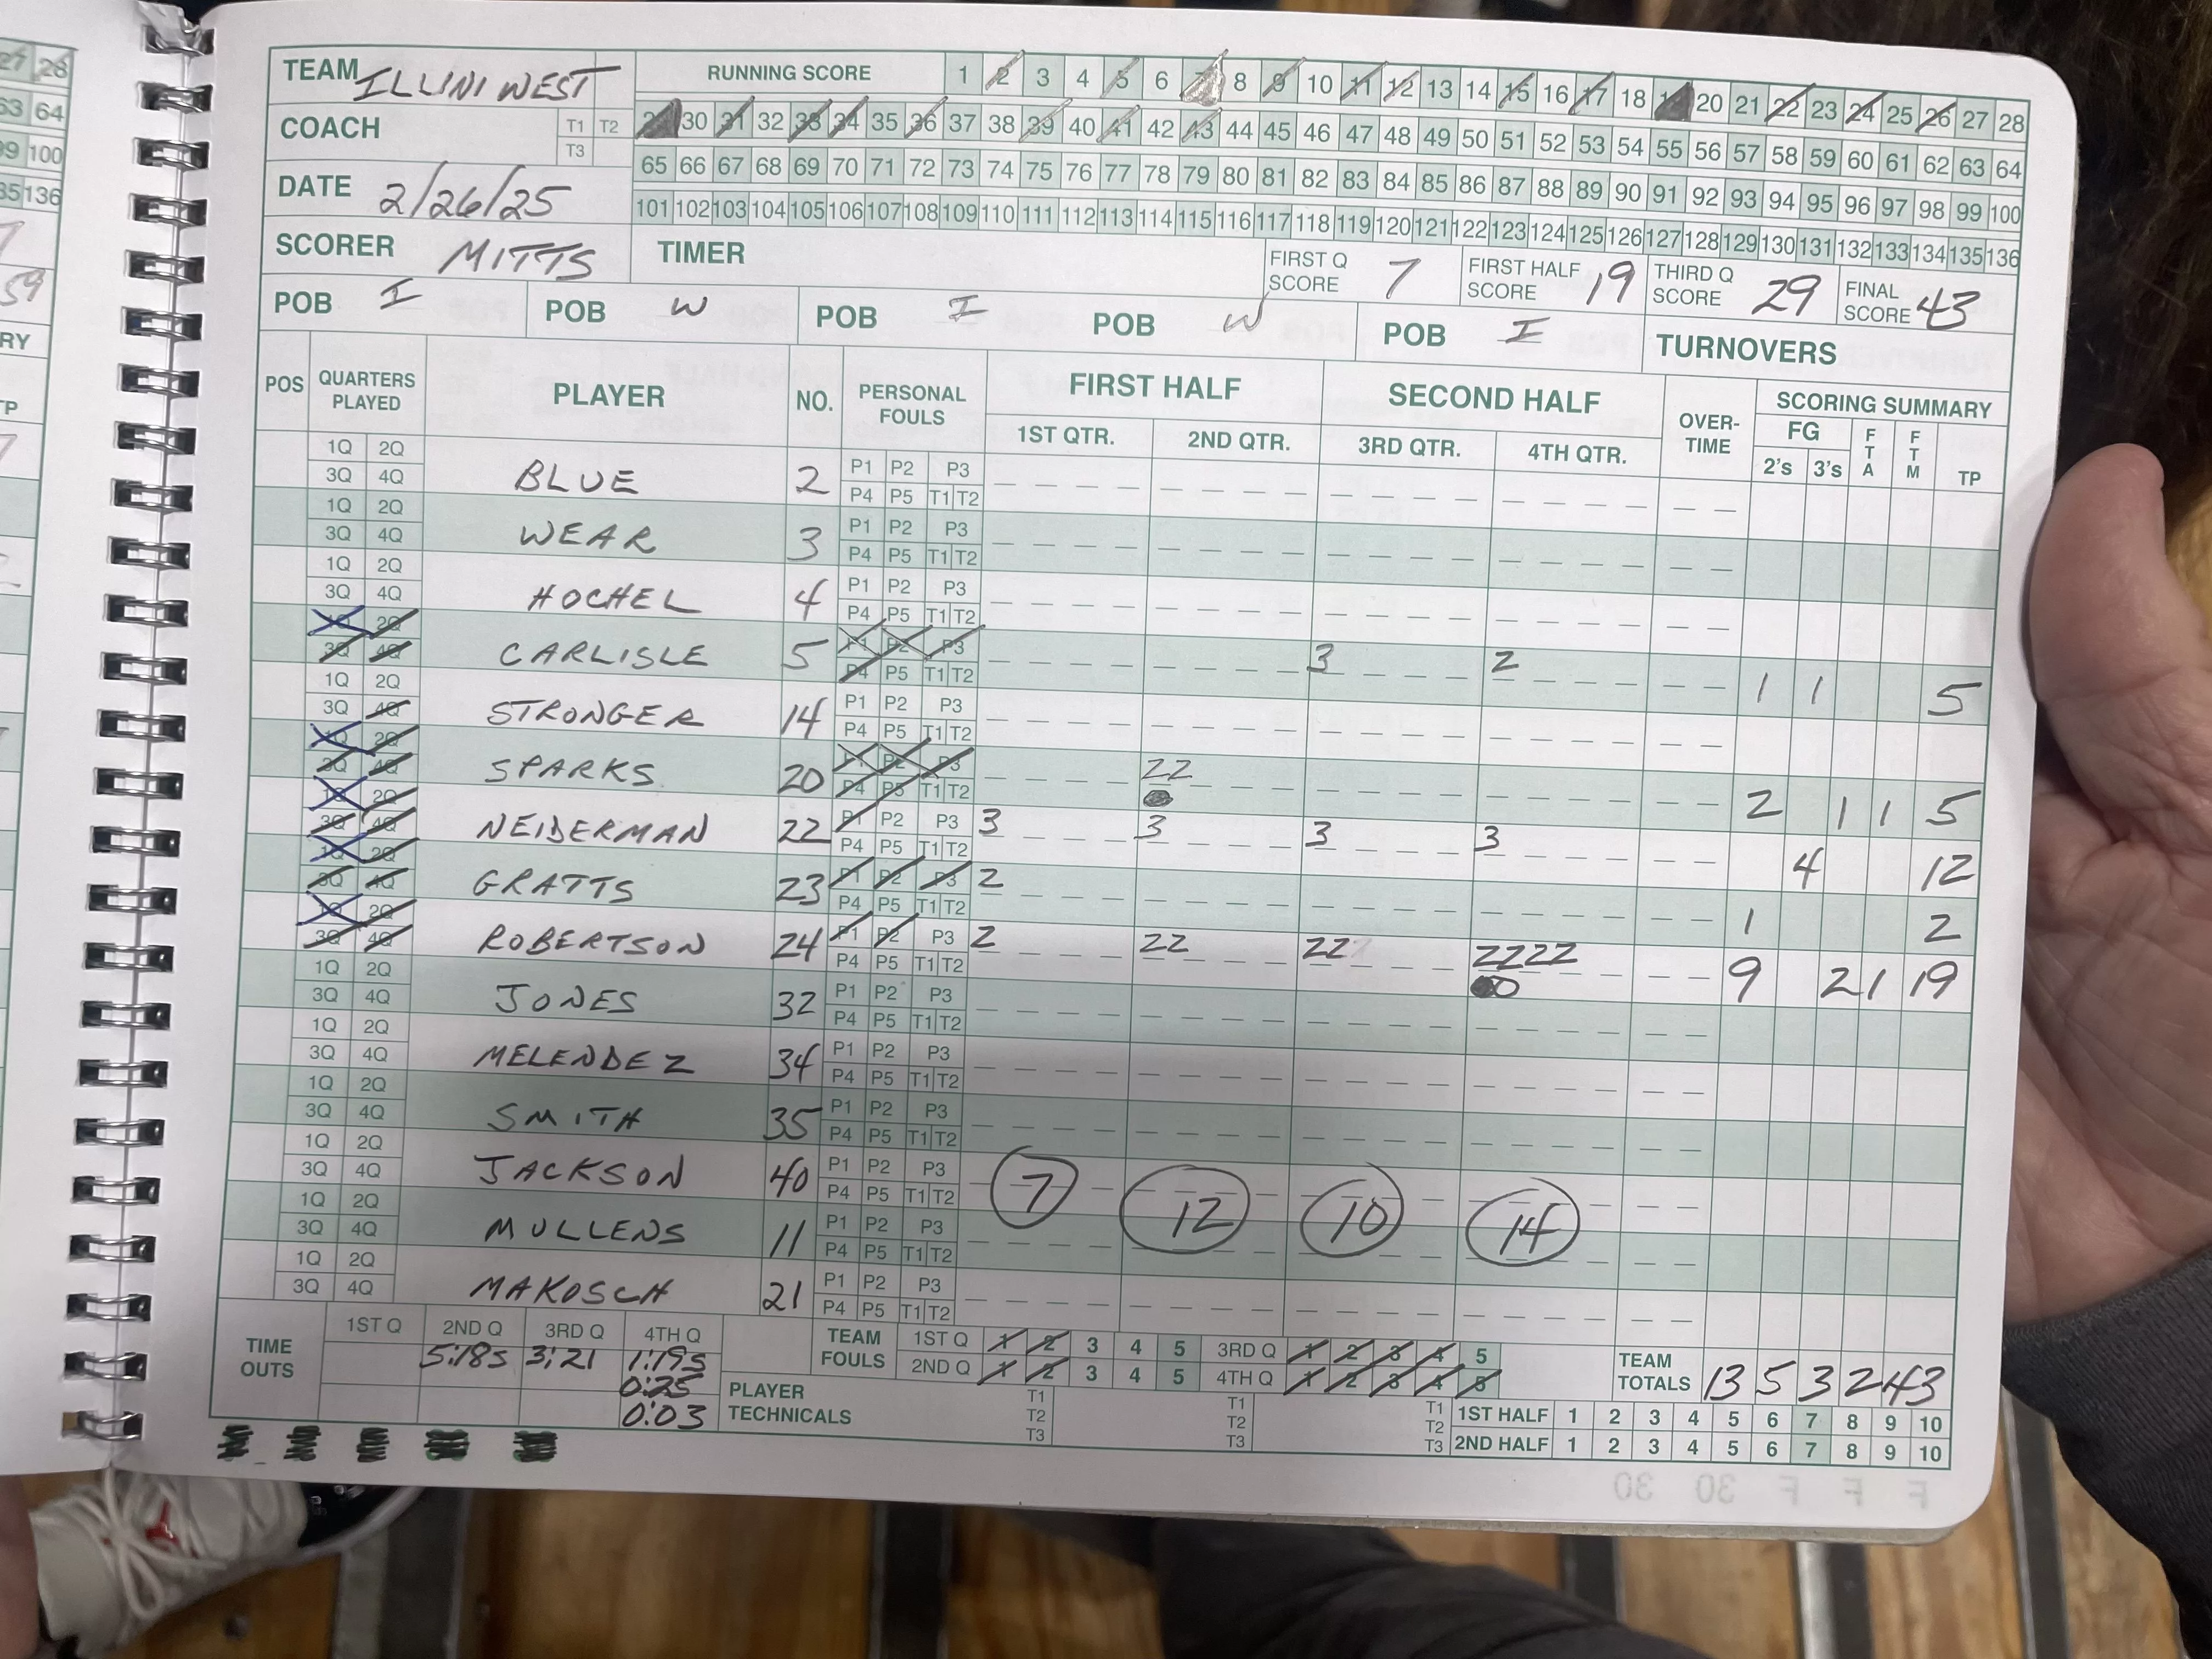 27 28
63 64
99 100
35 136
59
RY
TP
TEAM ILLINI WEST
RUNNING SCORE 1 2 3 4 5 6 7 8 9 10 11 12 13 14 15 16 17 18 19 20 21 22 23 24 25 26 27 28
29 30 31 32 33 34 35 36 37 38 39 40 41 42 43 44 45 46 47 48 49 50 51 52 53 54 55 56 57 58 59 60 61 62 63 64
COACH T1 T2 T3
65 66 67 68 69 70 71 72 73 74 75 76 77 78 79 80 81 82 83 84 85 86 87 88 89 90 91 92 93 94 95 96 97 98 99 100
DATE 2/26/25
101 102 103 104 105 106 107 108 109 110 111 112 113 114 115 116 117 118 119 120 121 122 123 124 125 126 127 128 129 130 131 132 133 134 135 136
SCORER MITTS TIMER
FIRST Q SCORE 7 FIRST HALF SCORE 19 THIRD Q SCORE 29 FINAL SCORE 43
POB I POB W POB I POB W POB I TURNOVERS
POS QUARTERS PLAYED PLAYER NO. PERSONAL FOULS FIRST HALF SECOND HALF OVER-TIME SCORING SUMMARY
1ST QTR. 2ND QTR. 3RD QTR. 4TH QTR. FG 2's 3's FTA FTM TP
1Q 2Q 3Q 4Q BLUE 2 P1 P2 P3 P4 P5 T1 T2
1Q 2Q 3Q 4Q WEAR 3 P1 P2 P3 P4 P5 T1 T2
1Q 2Q 3Q 4Q HOCHEL 4 P1 P2 P3 P4 P5 T1 T2
1Q 2Q 3Q 4Q CARLISLE 5 P1 P2 P3 P4 P5 T1 T2 3 2 1 1 5
1Q 2Q 3Q 4Q STRONGER 14 P1 P2 P3 P4 P5 T1 T2
1Q 2Q 3Q 4Q SPARKS 20 P1 P2 P3 P4 P5 T1 T2 22 2 1 1 5
1Q 2Q 3Q 4Q NEIDERMAN 22 P1 P2 P3 P4 P5 T1 T2 3 3 3 3 4 12
1Q 2Q 3Q 4Q GRATTS 23 P1 P2 P3 P4 P5 T1 T2 2 1 2
1Q 2Q 3Q 4Q ROBERTSON 24 P1 P2 P3 P4 P5 T1 T2 2 22 22 2222 9 2 1 19
1Q 2Q 3Q 4Q JONES 32 P1 P2 P3 P4 P5 T1 T2
1Q 2Q 3Q 4Q MELENDEZ 34 P1 P2 P3 P4 P5 T1 T2
1Q 2Q 3Q 4Q SMITH 35 P1 P2 P3 P4 P5 T1 T2
1Q 2Q 3Q 4Q JACKSON 40 P1 P2 P3 P4 P5 T1 T2 7 12 10 14
1Q 2Q 3Q 4Q MULLENS 11 P1 P2 P3 P4 P5 T1 T2
1Q 2Q 3Q 4Q MAKOSCH 21 P1 P2 P3 P4 P5 T1 T2
TIME OUTS 1ST Q 2ND Q 3RD Q 4TH Q
5:18s 3:21 1:19s
0:25
0:03
TEAM FOULS 1ST Q 1 2 3 4 5 3RD Q 1 2 3 4 5
2ND Q 1 2 3 4 5 4TH Q 1 2 3 4 5
TEAM TOTALS 13 5 3 2 43
PLAYER TECHNICALS T1 T2 T3 T1 T2 T3 T1 T2 T3
1ST HALF 1 2 3 4 5 6 7 8 9 10
2ND HALF 1 2 3 4 5 6 7 8 9 10